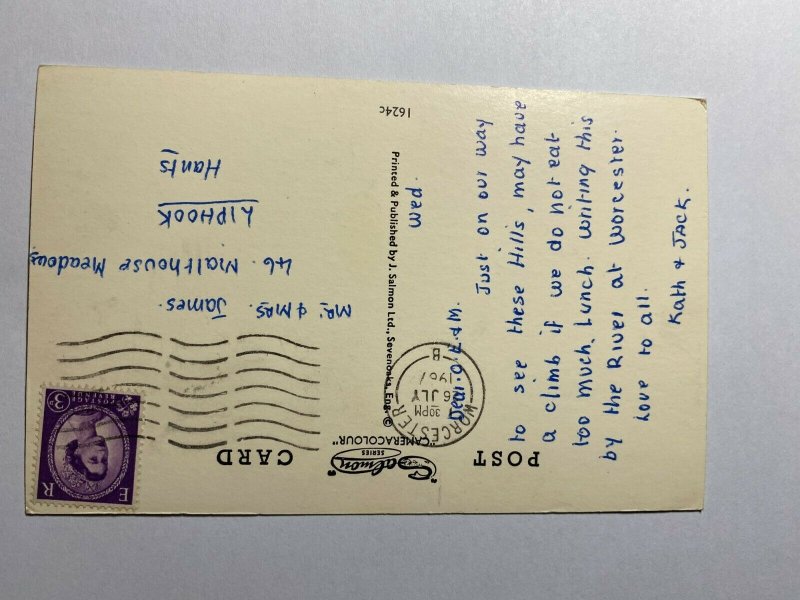 POST CARD
"Salmon"
SERIES
"CAMERACOLOUR"
WORCESTER
30PM
6 JLY
1967
B
E R
POSTAGE
REVENUE
3D
Wed.
Dear O. A & M.
Just on our way
to see these Hills, may have
a climb if we do not eat
too much Lunch. writing this
by the River at Worcester.
Love to all.
Kath & JACK.
Printed & Published by J. Salmon Ltd., Sevenoaks, Eng. ©
1624c
MR. & MRS. James.
46. Malthouse Meadows
LIPHOOK
Hants